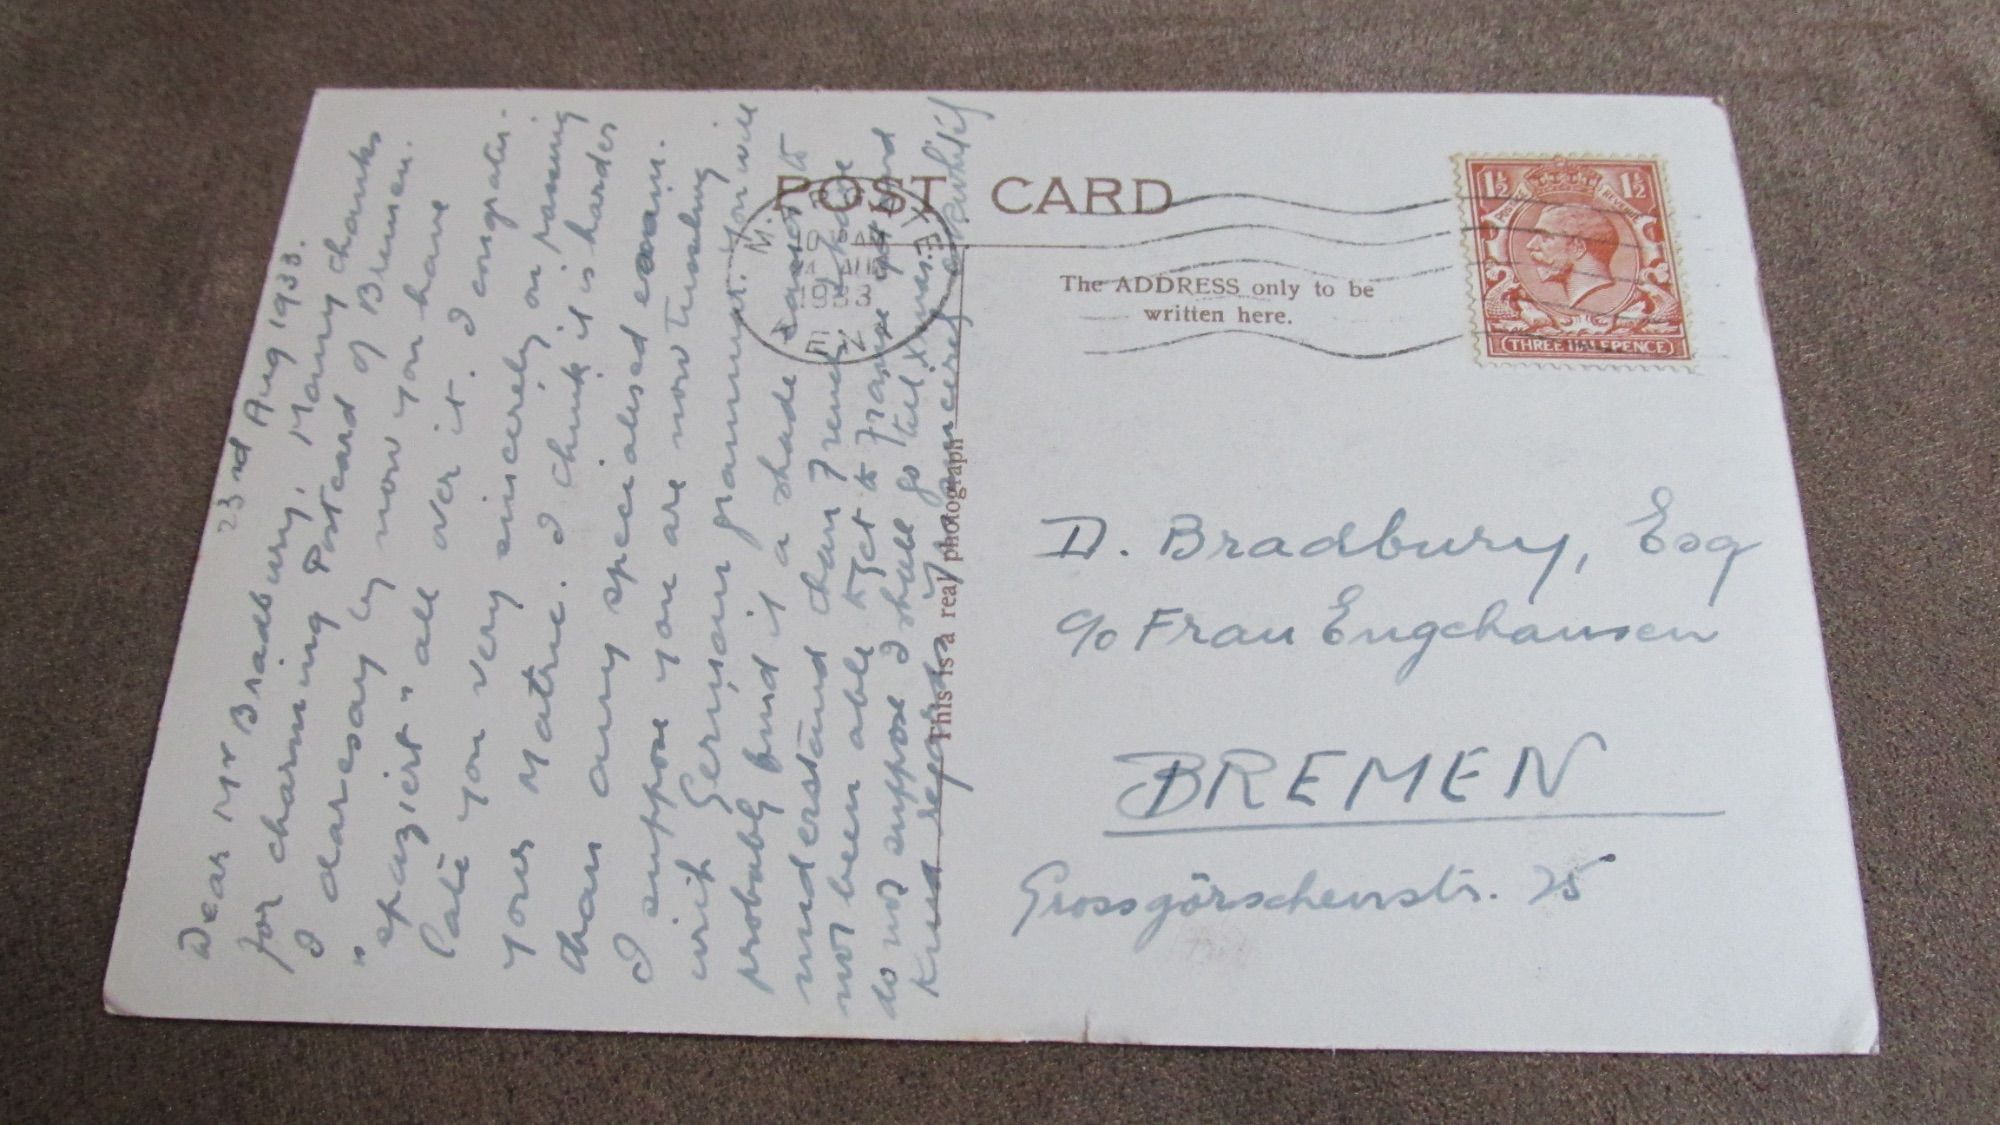 23rd Aug 1933.
Dear Mr Bradbury, Many thanks
for charming Postcard of Bremen.
I daresay by now you have
"spaziert" all over it. I congratu-
late you very sincerely on passing
your Matric. I think it is harder
than any specialised exam.
I suppose you are now tussling
with German grammar. You will
probably find it a shade easier to
understand than French. I have
not been able to get to France and
do not suppose I shall go till Xmas.
Kind regards, yours sincerely
POST CARD
10 PM
24 AUG
1933
The ADDRESS only to be
written here.
This is a real photograph
1½ 1½
POSTAGE REVENUE
THREE HALFPENCE
D. Bradbury, Esq
c/o Frau Engehausen
BREMEN
Grossgörschenstr. 25